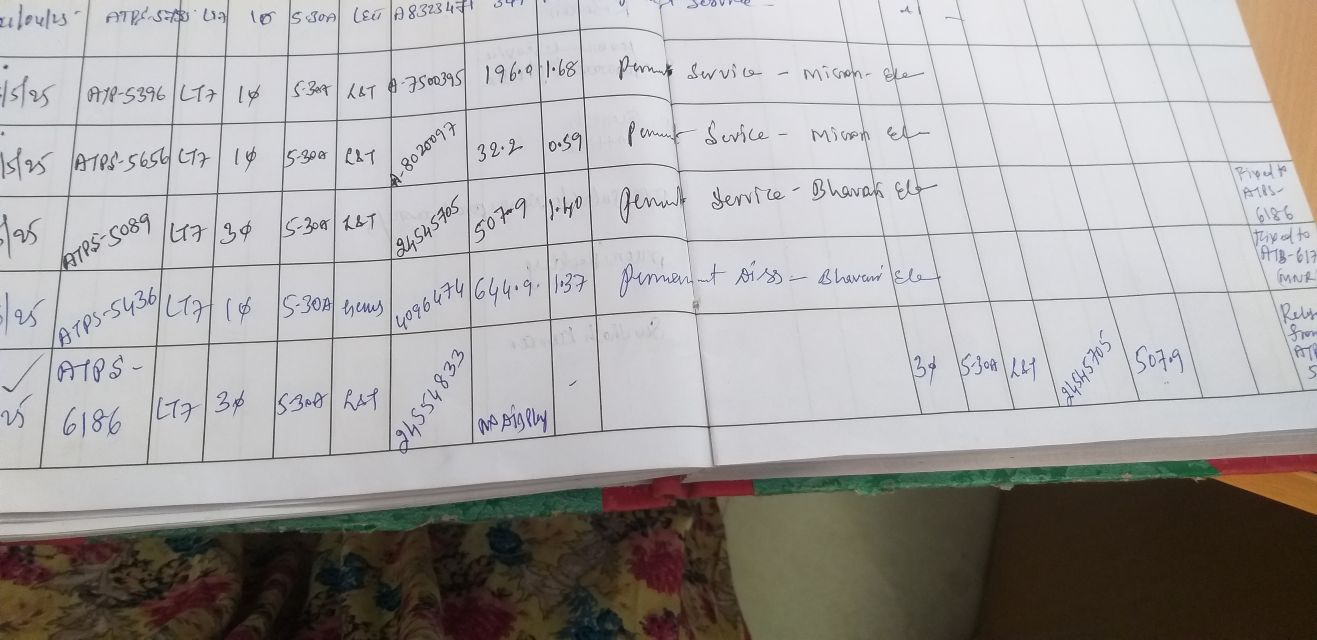 ATPS-5755 LT7 1φ 5-30A L&T A8323471
/5/25 ATP-5396 LT7 1φ 5-30A L&T A-7500395 196.9 1.68 Service - Micron - Ele
/5/25 ATPS-5656 LT7 1φ 5-30A L&T A-8020097 32.2 0.59 Service - Micron Ele
/25 ATPS-5089 LT7 3φ 5-30A L&T 24545705 507.9 1.40 Service - Bhavani Ele Fixed to ATPS-6186
/25 ATPS-5436 LT7 1φ 5-30A Genus 4096474 644.9 1.37 Permanent Diss - Bhavani Ele Fixed to ATPS-617
25 ATPS-6186 LT7 3φ 5-30A L&T 24554833 NO Display - 3φ 5-30A L&T 24545705 507.9 from